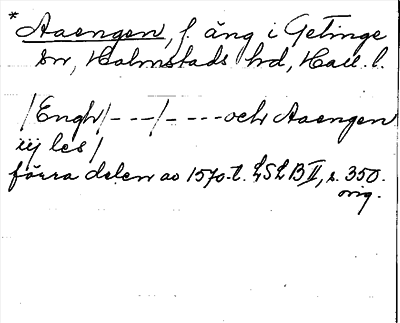 * Aaengen, f. äng i Getinge
sn, Halmstads hd, Hall. l.
/Engh/---/----och Aaengen
iij les/
förra delen av 1570-t. LSLB II, s. 350.
orig.